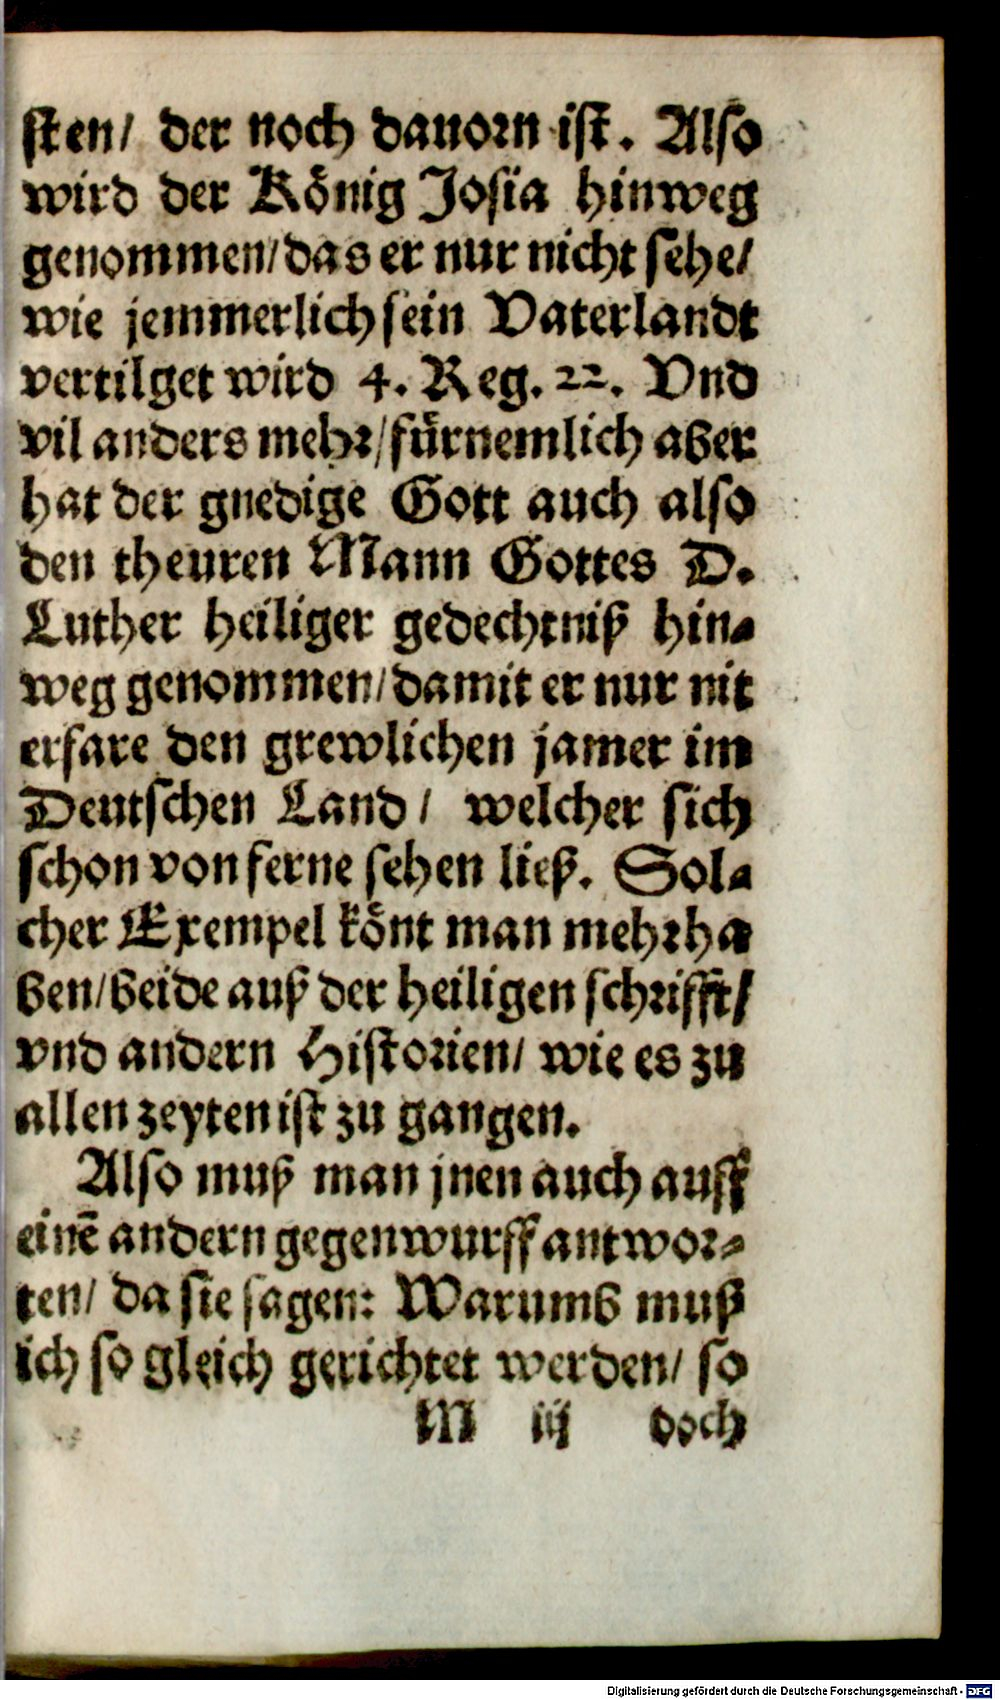 sten/ der noch dauorn ist. Also
wird der König Josia hinweg
genommen/das er nur nicht sehe/
wie jemmerlich sein Vaterlandt
vertilget wird 4. Reg. 22. Vnd
vil anders mehr/fürnemlich aber
hat der gnedige Gott auch also
den theuren Mann Gottes D.
Luther heiliger gedechtniß hin-
weg genommen/damit er nur nit
erfare den grewlichen jamer im
Deutschen Land/ welcher sich
schon von ferne sehen ließ. Sol-
cher Exempel könt man mehr ha
ben/beide auß der heiligen schrifft/
vnd andern Historien/ wie es zu
allen zeyten ist zu gangen.
Also muß man jnen auch auff
einē andern gegenwurff antwor-
ten/ da sie sagen: Warumb muß
ich so gleich gerichtet werden/ so
M iij doch
Digitalisierung gefördert durch die Deutsche Forschungsgemeinschaft - DFG